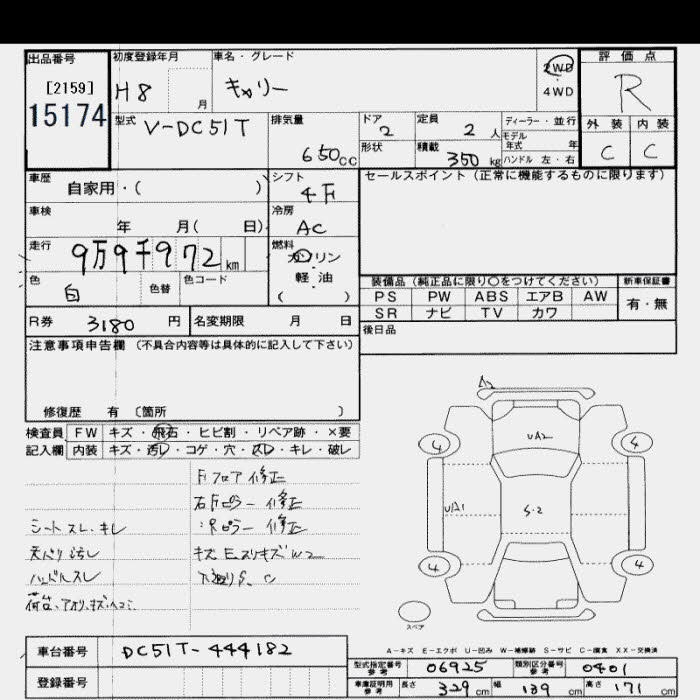 出品番号
[2159]
15174
初度登録年月
H8 月
車名・グレード
キャリー
2WD
4WD
評価点
R
外装 内装
C C
型式
V-DC51T
排気量
650cc
ドア
2
定員
2 人
形状
積載
350 kg
ディーラー・並行
モデル年式 年
ハンドル 左・右
車歴
自家用・( )
シフト
4F
セールスポイント (正常に機能するものに限ります)
車検
年 月( 日)
冷房
AC
走行
9万9千972 km
燃料
ガソリン
軽油
( )
色
白
色替
色コード
装備品 (純正品に限り○をつけてください)
新車保証書
PS PW ABS エアB AW
有・無
SR ナビ TV カワ
R券 3180 円
名変期限 月 日
後日品
注意事項申告欄 (不具合内容等は具体的に記入して下さい)
修復歴 有 〔箇所 〕
検査員 FW キズ・飛石・ヒビ割・リペア跡・×要
記入欄 内装 キズ・汚レ・コゲ・穴・スレ・キレ・破レ
Fフロア修正
右Fピラー 修正
シートスレ・キレ
天バリ汚レ
ハンドルスレ
荷台、アオリ、キズ・ヘコミ
A2
UA2
4 4
UA1
S-2
4 4
スペア
A-キズ E-エクボ U-凹み W-補修跡 S-サビ C-腐食 XX-交換済
車台番号
DC51T-444182
登録番号
型式指定番号
参考
06925
類別区分番号
参考
0401
車庫証明用
参考
長さ 329 cm 幅 139 cm 高さ 171 cm